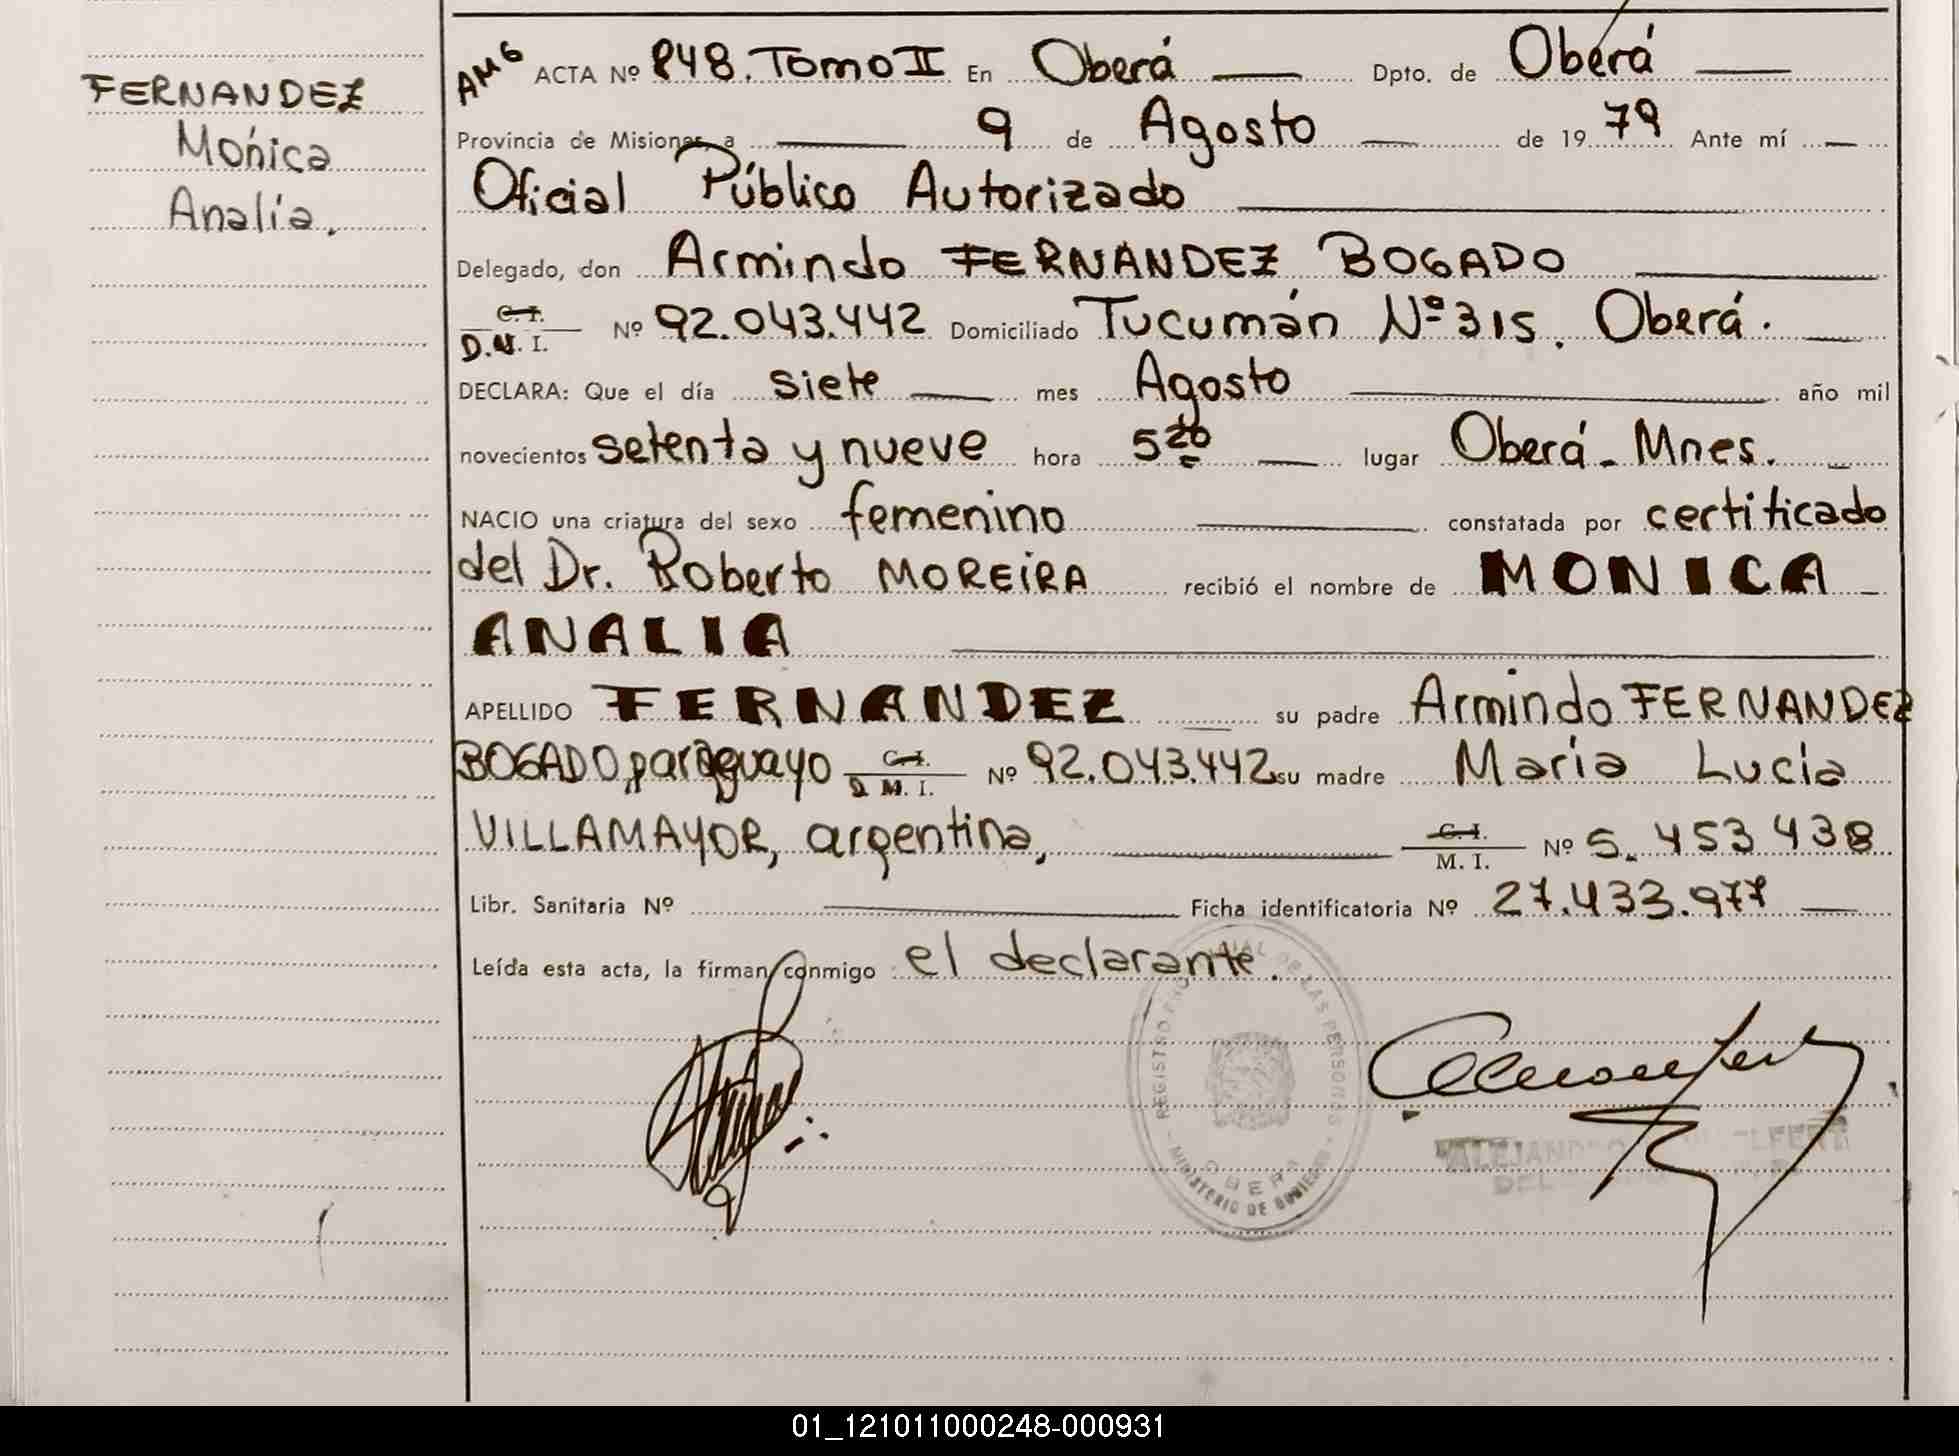 FERNANDEZ
Mónica
Analía.
AMG ACTA Nº 848. Tomo II En Oberá Dpto. de Oberá
Provincia de Misiones, a 9 de Agosto de 1979 Ante mí
Oficial Público Autorizado
Delegado, don Armindo FERNANDEZ BOGADO
C. I.
D.N. I. Nº 92.043.442 Domiciliado Tucumán Nº 315. Oberá.
DECLARA: Que el día siete mes Agosto año mil
novecientos setenta y nueve hora 5 20 lugar Oberá - Mnes.
NACIO una criatura del sexo femenino constatada por certificado
del Dr. Roberto MOREIRA recibió el nombre de MONICA
ANALIA
APELLIDO FERNANDEZ su padre Armindo FERNANDEZ
BOGADO, paraguayo C. I. / D M. I. Nº 92.043.442 su madre María Lucia
VILLAMAYOR, argentina, C. I. / M. I. Nº 5. 453 438
Libr. Sanitaria Nº Ficha identificatoria Nº 27.433.977
Leída esta acta, la firman conmigo el declarante.
REGISTRO DE LAS PERSONAS
MINISTERIO DE GOBIERNO
OBERA
01_121011000248-000931